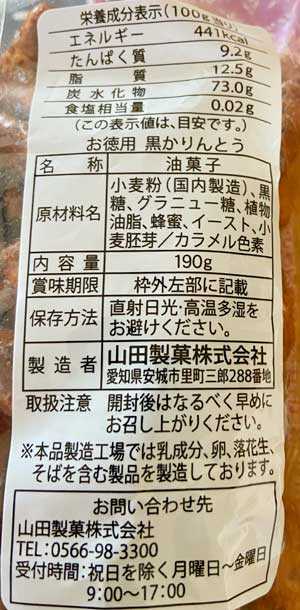 栄養成分表示(100g当り)
エネルギー 441kcal
たんぱく質 9.2g
脂質 12.5g
炭水化物 73.0g
食塩相当量 0.02g
(この表示値は、目安です。)
お徳用 黒かりんとう
名称 油菓子
原材料名 小麦粉(国内製造)、黒
糖、グラニュー糖、植物
油脂、蜂蜜、イースト、小
麦胚芽／カラメル色素
内容量 190g
賞味期限 枠外左部に記載
保存方法 直射日光・高温多湿を
お避けください。
製造者 山田製菓株式会社
愛知県安城市里町三郎288番地
取扱注意 開封後はなるべく早めに
お召し上がりください。
※本品製造工場では乳成分、卵、落花生、
そばを含む製品を製造しております。
お問い合わせ先
山田製菓株式会社
TEL:0566-98-3300
受付時間:祝日を除く月曜日～金曜日
9:00～17:00